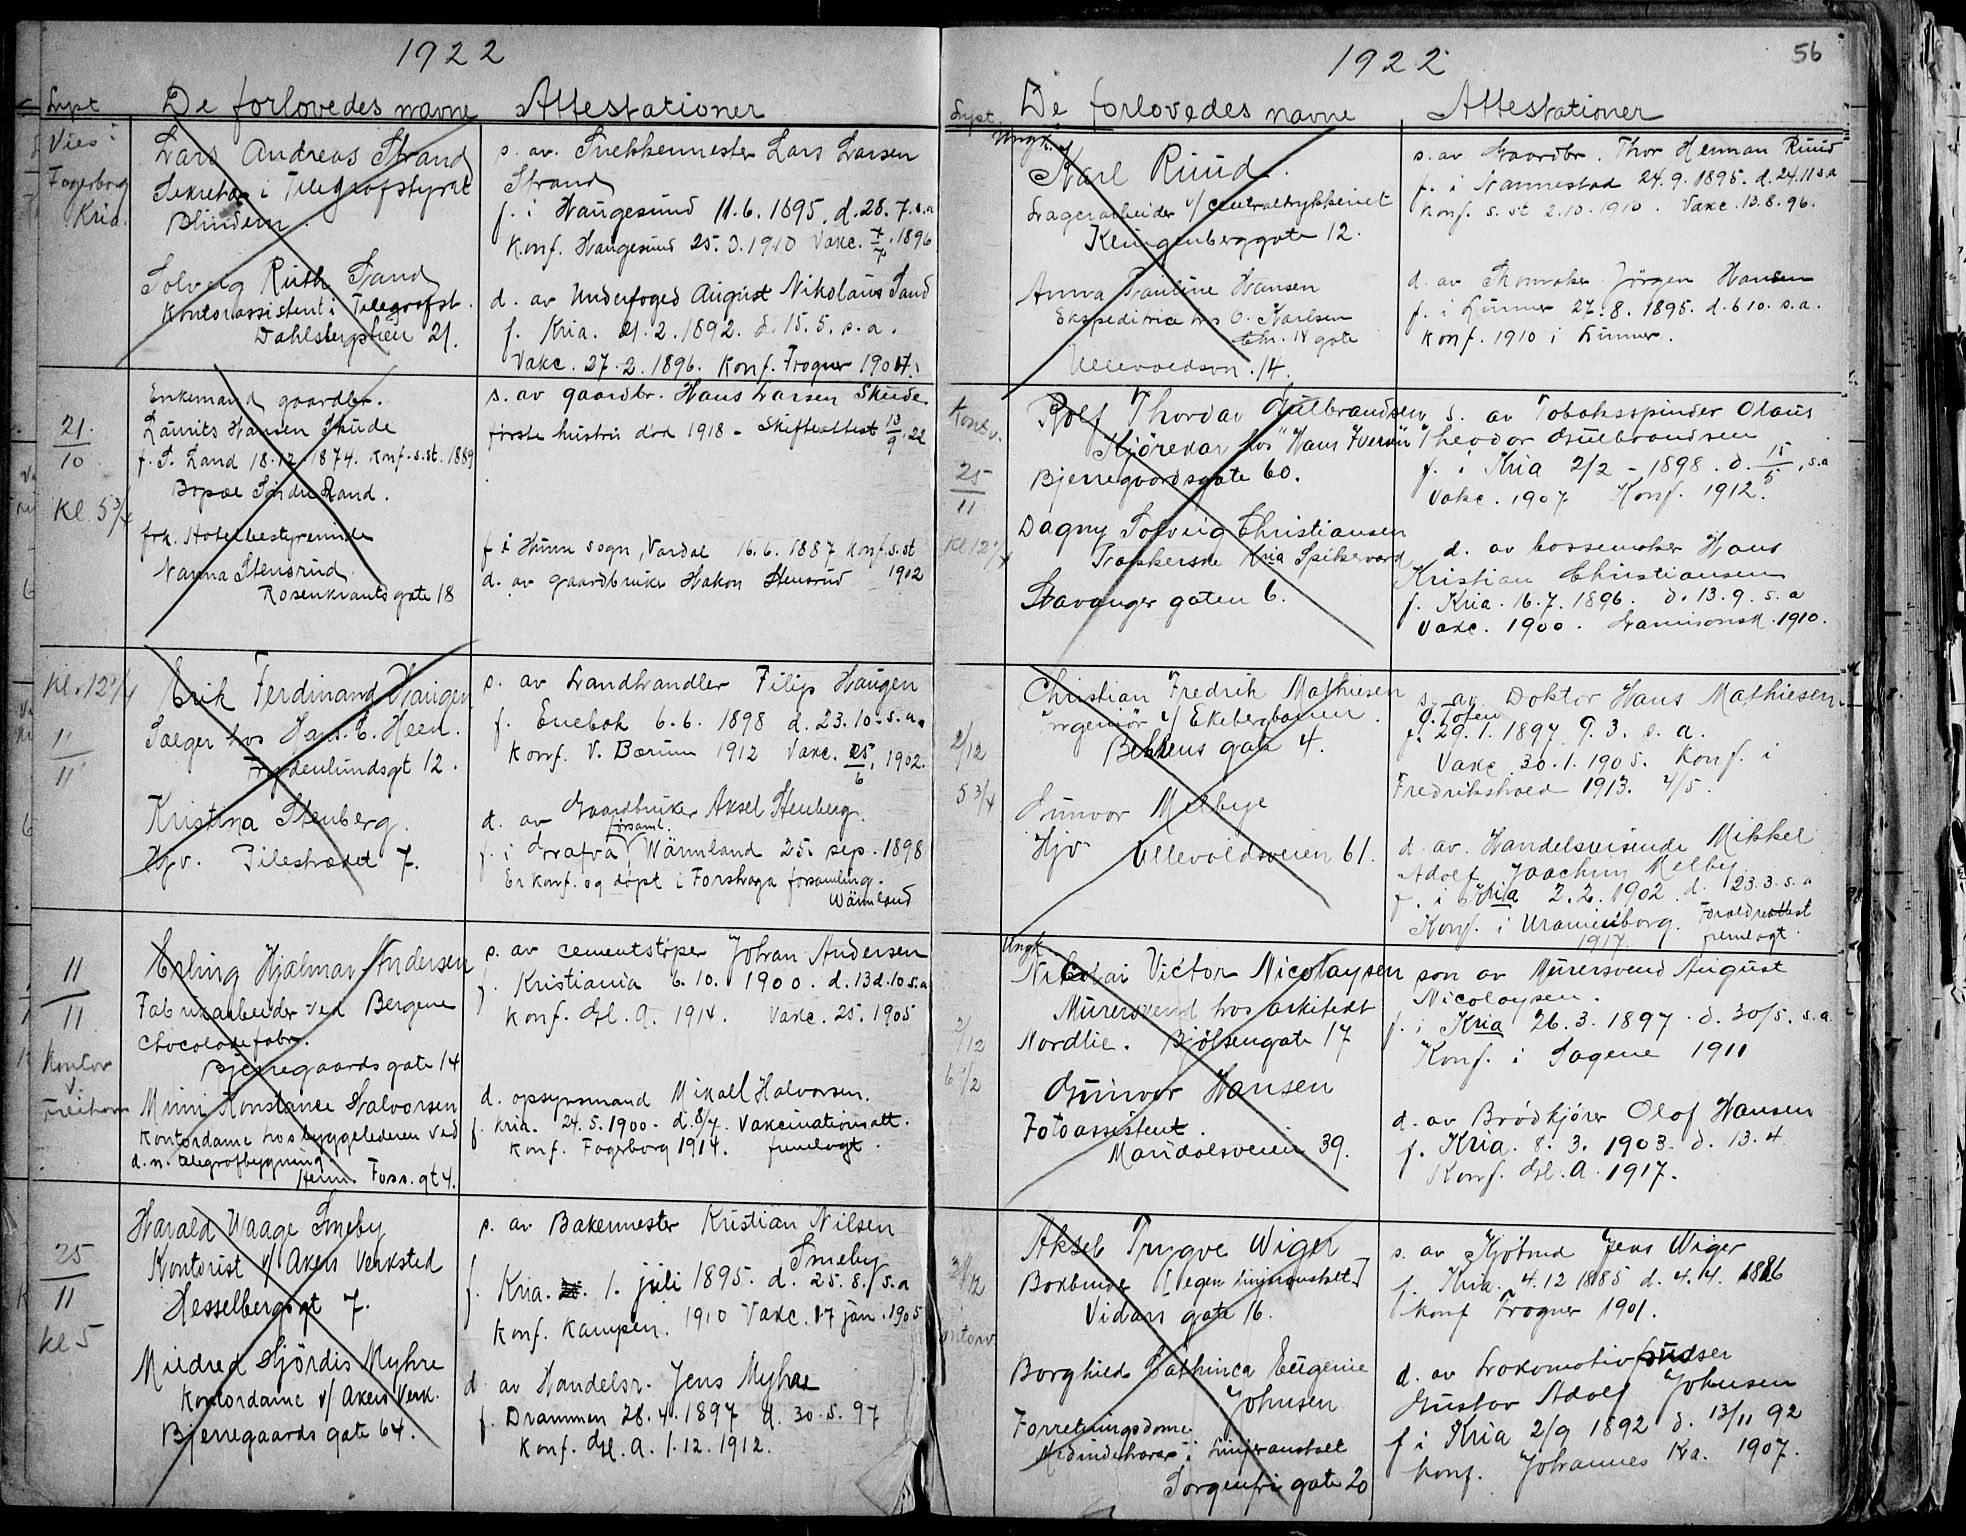 1922
Sept De forlovedes navne Attestationer
Vies i
Fagerborg
Kria.
Lars Andreas Strand
Sekretær i Telegrafstyret
Blindern
Solveig Ruth Sand
Kontorassistent i Telegrafst.
Dahlsbergstien 21.
s. av Snekkermester Lars Larsen
Strand
f. i Haugesund 11.6.1895. d. 28.7. s.a
Konf. Haugesund 25. 1910 Vakc. 1896
d. av Underfoged August Nikolaus Sand
f. Kria. 21.2.1892. d. 15.5. s.a.
Vakc. 27.2.1896. Konf. Frogner 1907.
21/10
Kl. 5 3/4
Enkemand gaardbr.
Laurits Hansen Skude
f. S. Land 18.12.1874. Konf. s.st. 1889
Bopæl Søndre Land.
frk. Hotelbestyrerinde
Nanna Stensrud
Rosenkrantsgate 18
s. av gaardbr. Hans Larsen Skude
første hustru död 1918 - Skifteattest 13/9.22
f i Hunn sogn, Vardal 16.6.1887 Konf. s.st
1902
d. av gaardbruker Hakon Stensrud
Kl. 12 1/4
11/11
Erik Ferdinand Haugen
Sælger hos Hans E. Heen.
Frydenlundsgt 12.
Kristina Stenberg.
Hjv. Pilestrædet 7.
s. av Landhandler Filip Haugen
f. Enebak 6.6.1898 d. 23.10. s.a.
Konf. V. Bærum 1912 Vakc. 25/6. 1902.
d. av Gaardbruker Aksel Stenberg.
församl.
f. i Grafva, Wärmland 25. sep. 1898
Er konf. og döpt i Forshaga forsamling.
Wärmland
11/11
Kontor
v.
Erling Hjalmar Andersen
Fabrikarbeider ved Bergene
Chocoladefabr.
Bjerregaards gate 14
Minni Konstance Halvorsen
Kontordame hos byggelederen ved
d. n. telegrafbygning
Herm. Foss. gt 4.
s. av cementstöper Johan Andersen
f. Kristiania 6.10. 1900. d. 13 d. 10 s.a
Konf. Gl. A. 1914. Vakc. 25. 1905
d. opsynsmand Mikael Halvorsen.
f. Kria. 24.5.1900. d. 8/7. Vakcinationsatt.
Konf. Fagerborg 1914. fremlagt.
25/11
Kl 5
Harald Waage Smeby
Kontorist v/ Akers Verksted
Hesselbergsgt 7.
Mildred Hjördis Myhre
Kontordame v/ Akers Verk.
Bjerregaards gate 64.
s. av Bakermester Kristian Nilsen
Smeby
f. Kria. 1. juli 1895. d. 25.8. s.a
Konf. Kampen. 1910 Vakc. 17 jan. 1905
d av Handelsr. Jens Myhre
f. Drammen 28.4.1897 d. 30.5.97
Konf. Gl. A. 1.12.1912.
1922
56
Sept. De forlovedes navne Attestationer
Ungk.
Karl Ruud.
Lagerarbeider v/ Centraltrykkeriet
Klingenberggate 12.
Anna Pauline Hansen
Ekspeditrice hos O. Karlsen
Chr. IV gate
Ullevoldsvn. 14.
s. av Gaardbr. Thor Herman Ruud
f. i Nannestad 24.9.1895. d. 24.11 s.a
Konf. s. st 2.10.1910. Vakc. 13.8.96.
d. av Skomaker Jörgen Hansen
f. i Lunner 27.8.1895. d. 6 10. s.a.
Konf. 1910 i Lunner.
25/11
Kl 12 1/4
Rolf Thordar Gulbrandsen
Kjörekar hos "Hans Iversen"
Bjerregaardsgate 60.
Dagny Solveig Christiansen
Kria Spikerverk
Stavanger gaten 6.
s. av Tobakspinder Olaus
Theodor Gulbrandsen
f. i Kria 2/2 - 1898. d. 15/5. s.a
Vakc. 1907 Konf. 1912.
d. av Kassemaker Hans
Kristian Christiansen
f. Kria. 16.7.1896. d. 13.9. s.a
Vakc. 1900. Garnisonsk. 1910.
2/12
5 3/4
Christian Fredrik Mathiesen
Ingeniør v/ Ekebergbanen.
Behrens gate 4.
Gunvor Melbye
Hjv Ullevoldsveien 61.
s. av Doktor Hans Mathiesen
f. 29.1.1897 9.3. s.a.
Vakc 30.1.1905. Konf. i
Fredrikshald 1913. 4/5.
d. av. Handelsreisende Mikkel
Adolf Joachim Melby.
f. i Kria 2.2.1902 d. 23.3. s.a
Konf. i Uranienborg. Forældreattest
1917. fremlagt.
Ungk.
2/12
6 1/2
Nikolai Victor Nicolaysen
Murersvend hos arkitekt
Nordlie. Bjölsengate 17
Gunvor Hansen
Fotoassistent.
Maridalsveien 39.
søn av Murersvend August
Nicolaysen.
f. i Kria 26.3.1897. d. 30/5. s.a
Konf. i Sagene 1911
d. av Brödkjörer Olaf Hansen
f. Kria. 8.3.1903. d. 13.4
Konf. Gl. A. 1917.
Aksel Trygve Wiger
[egen linjeranstalt]
Vidars gate 16.
Borghild Cathinca Eugenie
Johnsen
Forretningsdame
Medindehaver i linjeranstalt
Sorgenfri gate 20
s. av Kjøbmd Jens Wiger
f. Kria. 4.12 1885 d. 4.4. 1886
Konf Frogner 1901.
d. av Lokomotiv
Gustav Adolf Johnsen
f i Kria 2/9 1892 d. 13/11 92
konf. Johannes Ka. 1907.